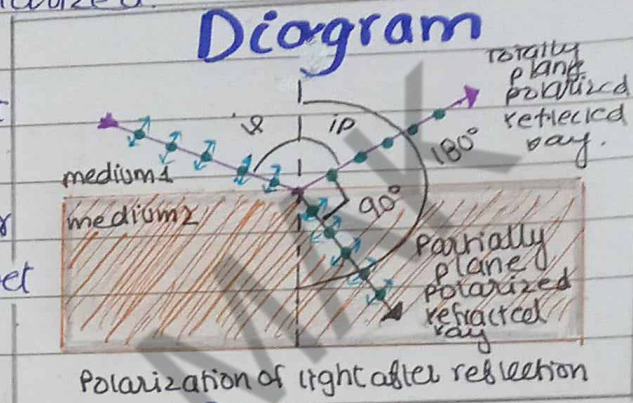 Diagram
Totally
plane
polarized
reflected
ray.
ip
180°
medium1
90°
medium2
Partially
plane
polarized
refracted
ray
et
MAK
Polarization of light after reflection